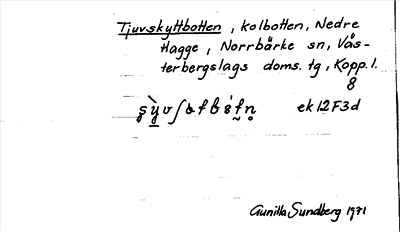 Tjuvskyttbotten, kolbotten, Nedre
Flagge, Norrbärke sn, Väs-
terbergslags doms. tg, Kopp. l.
8
ek 12F3d
Gunilla Sundberg 1971